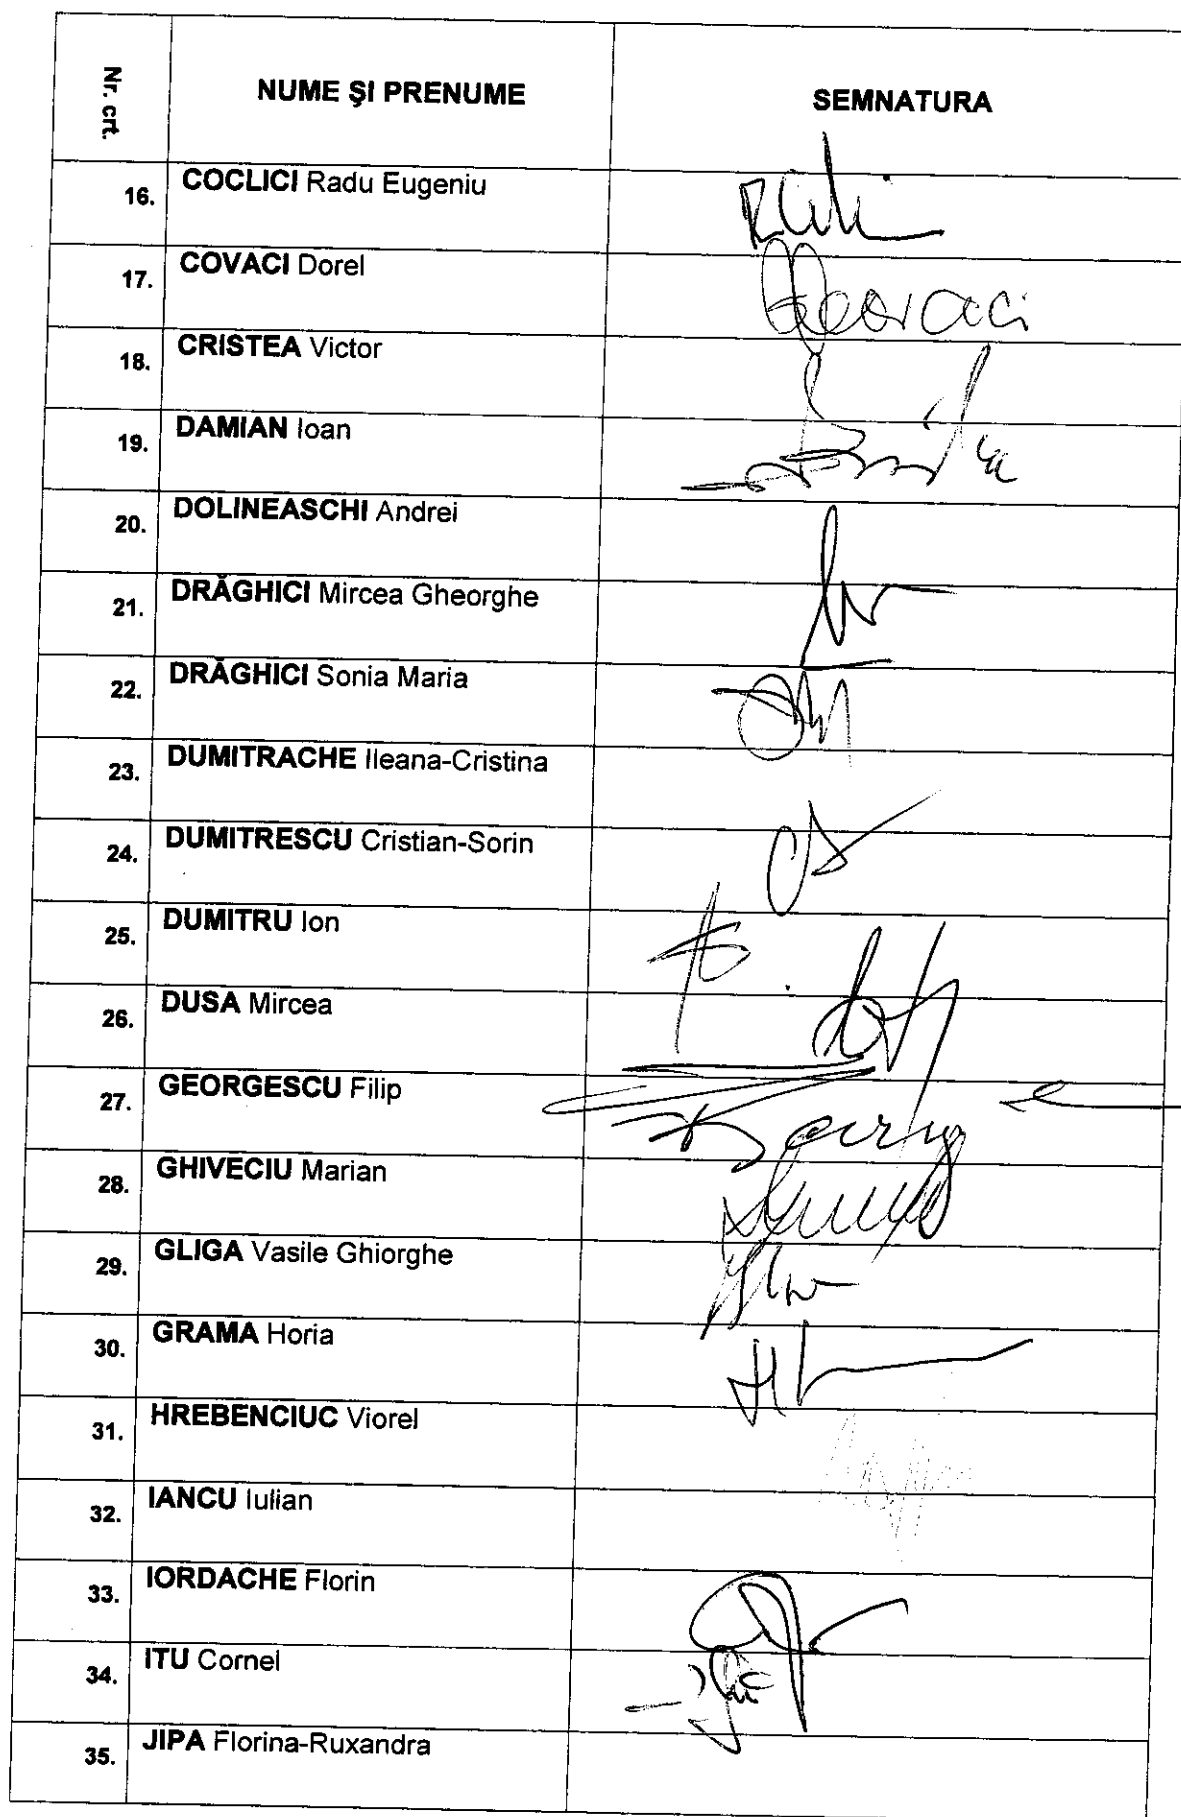 Nr. crt.
NUME ŞI PRENUME
SEMNATURA
16. COCLICI Radu Eugeniu
17. COVACI Dorel
18. CRISTEA Victor
19. DAMIAN Ioan
20. DOLINEASCHI Andrei
21. DRĂGHICI Mircea Gheorghe
22. DRĂGHICI Sonia Maria
23. DUMITRACHE Ileana-Cristina
24. DUMITRESCU Cristian-Sorin
25. DUMITRU Ion
26. DUSA Mircea
27. GEORGESCU Filip
28. GHIVECIU Marian
29. GLIGA Vasile Ghiorghe
30. GRAMA Horia
31. HREBENCIUC Viorel
32. IANCU Iulian
33. IORDACHE Florin
34. ITU Cornel
35. JIPA Florina-Ruxandra